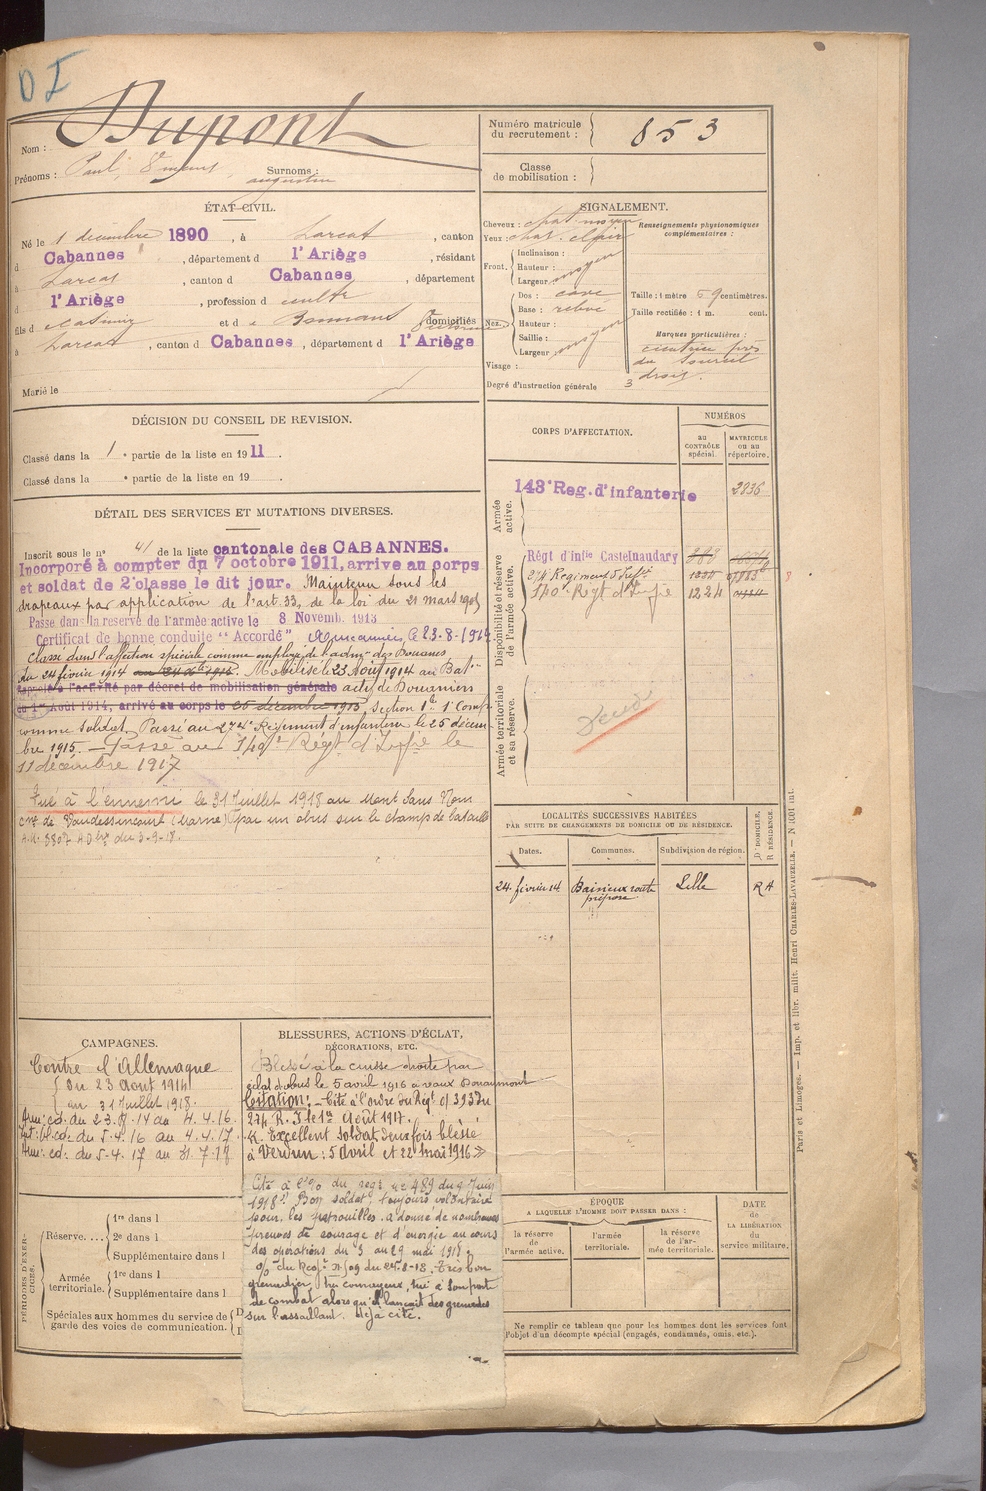 DI
Nom : Dupont
Prénoms : Paul, Surnoms :
augustin
Numéro matricule du recrutement : 853
Classe de mobilisation :
ÉTAT CIVIL.
Né le 1 décembre 1890, à Larcat, canton
d Cabannes, département d l'Ariège, résidant
à Larcat, canton d Cabannes, département
d l'Ariège, profession d cultr
fils d et d domiciliés
à Larcat, canton d Cabannes, département d l'Ariège
Marié le
SIGNALEMENT.
Cheveux : chat. moyen
Yeux : chat. clair
Front. Inclinaison :
Hauteur : moyen
Largeur :
Nez. Dos : cave
Base : relevé
Hauteur :
Saillie : moyen
Largeur
Visage :
Degré d'instruction générale 3
Renseignements physionomiques complémentaires :
Taille : 1 mètre 59 centimètres.
Taille rectifiée : 1 m. cent.
Marques particulières :
cicatrice près
du sourcil
droit.
DÉCISION DU CONSEIL DE REVISION.
Classé dans la 1e partie de la liste en 1911.
Classé dans la e partie de la liste en 19 .
CORPS D'AFFECTATION.
NUMÉROS
au CONTRÔLE spécial.
MATRICULE ou au répertoire.
Armée active.
143e Reg. d'infanterie 2836
Disponibilité et réserve de l'armée active.
Régt d'infie Castelnaudary
274 Régiment d'Infie
140e Régt d'Infie 1224
Armée territoriale et sa réserve.
DÉTAIL DES SERVICES ET MUTATIONS DIVERSES.
Inscrit sous le n° 41 de la liste cantonale des CABANNES.
Incorporé à compter du 7 octobre 1911, arrive au corps
et soldat de 2e classe le dit jour. Maintenu sous les
drapeaux par application de l'art. 33, de la loi du 21 mars 1905
Passé dans la réserve de l'armée active le 8 Novemb. 1913
Certificat de bonne conduite "Accordé"
Classé dans l'affection spéciale comme employé de l'admon des Douanes
du 24 février 1914 Mobilisé le 23 Août 1914 au Baton
Rappelé à l'activité par décret de mobilisation générale actif de Douaniers
du 1er Août 1914, arrivé au corps le 25 décembre 1915, Section 1e 1e Comp
comme soldat. Passé au 274e Régiment d'infanterie le 25 décem-
bre 1915. — Passé au 140e Régt d'Infie le
11 décembre 1917
Tué à l'ennemi le 31 Juillet 1918 au Mont Sans Nom
Cne de Vaudessincourt (Marne) par un obus sur le champ de bataille
LOCALITÉS SUCCESSIVES HABITÉES
PAR SUITE DE CHANGEMENTS DE DOMICILE OU DE RÉSIDENCE.
Dates. Communes. Subdivision de région. D. DOMICILE. R. RÉSIDENCE
24 février 14 Baisieux route Lille RA
préposé
CAMPAGNES.
Contre l'Allemagne
du 23 Août 1914
au 31 Juillet 1918.
Arm: cd. du 23.8.14 au 4.4.16.
Int: bl. cd: du 5.4.16 au 4.4.17.
Arm: cd: du 5.4.17 au 31.7.18
BLESSURES, ACTIONS D'ÉCLAT,
DÉCORATIONS, ETC.
Blessé à la cuisse droite par
éclat d'obus le 5 avril 1916 à vaux Douaumont
Citation: — Cité à l'ordre du Régt n° 393 du
274 R. I. le 1er Août 1917.
Excellent soldat deux fois blessé
à Verdun : 5 avril et 22 mai 1916 »
Cité à l'O/ du régt n° 489 du 9 Juin
1918: Bon soldat, toujours volontaire
pour les patrouilles. a donné de nombreuses
preuves de courage et d'énergie au cours
des opérations du 3 au 29 mai 1918.
O/ du Régt n° 509 du 24-8-18. Très bon
grenadier, très courageux, tué à son poste
de combat alors qu'il lançait des grenades
sur l'assaillant. déjà cité.
PÉRIODES D'EXERCICES.
Réserve.... 1re dans l
2e dans l
Supplémentaire dans l
Armée territoriale. 1re dans l
Supplémentaire dans l
Spéciales aux hommes du service de garde des voies de communication.
ÉPOQUE
A LAQUELLE L'HOMME DOIT PASSER DANS :
la réserve de l'armée active.
l'armée territoriale.
la réserve de l'armée territoriale.
DATE de LA LIBÉRATION du service militaire.
Ne remplir ce tableau que pour les hommes dont les services font
l'objet d'un décompte spécial (engagés, condamnés, omis. etc.).
Paris et Limoges. — Imp. et libr. milit. Henri CHARLES-LAVAUZELLE. — N 1001 int.